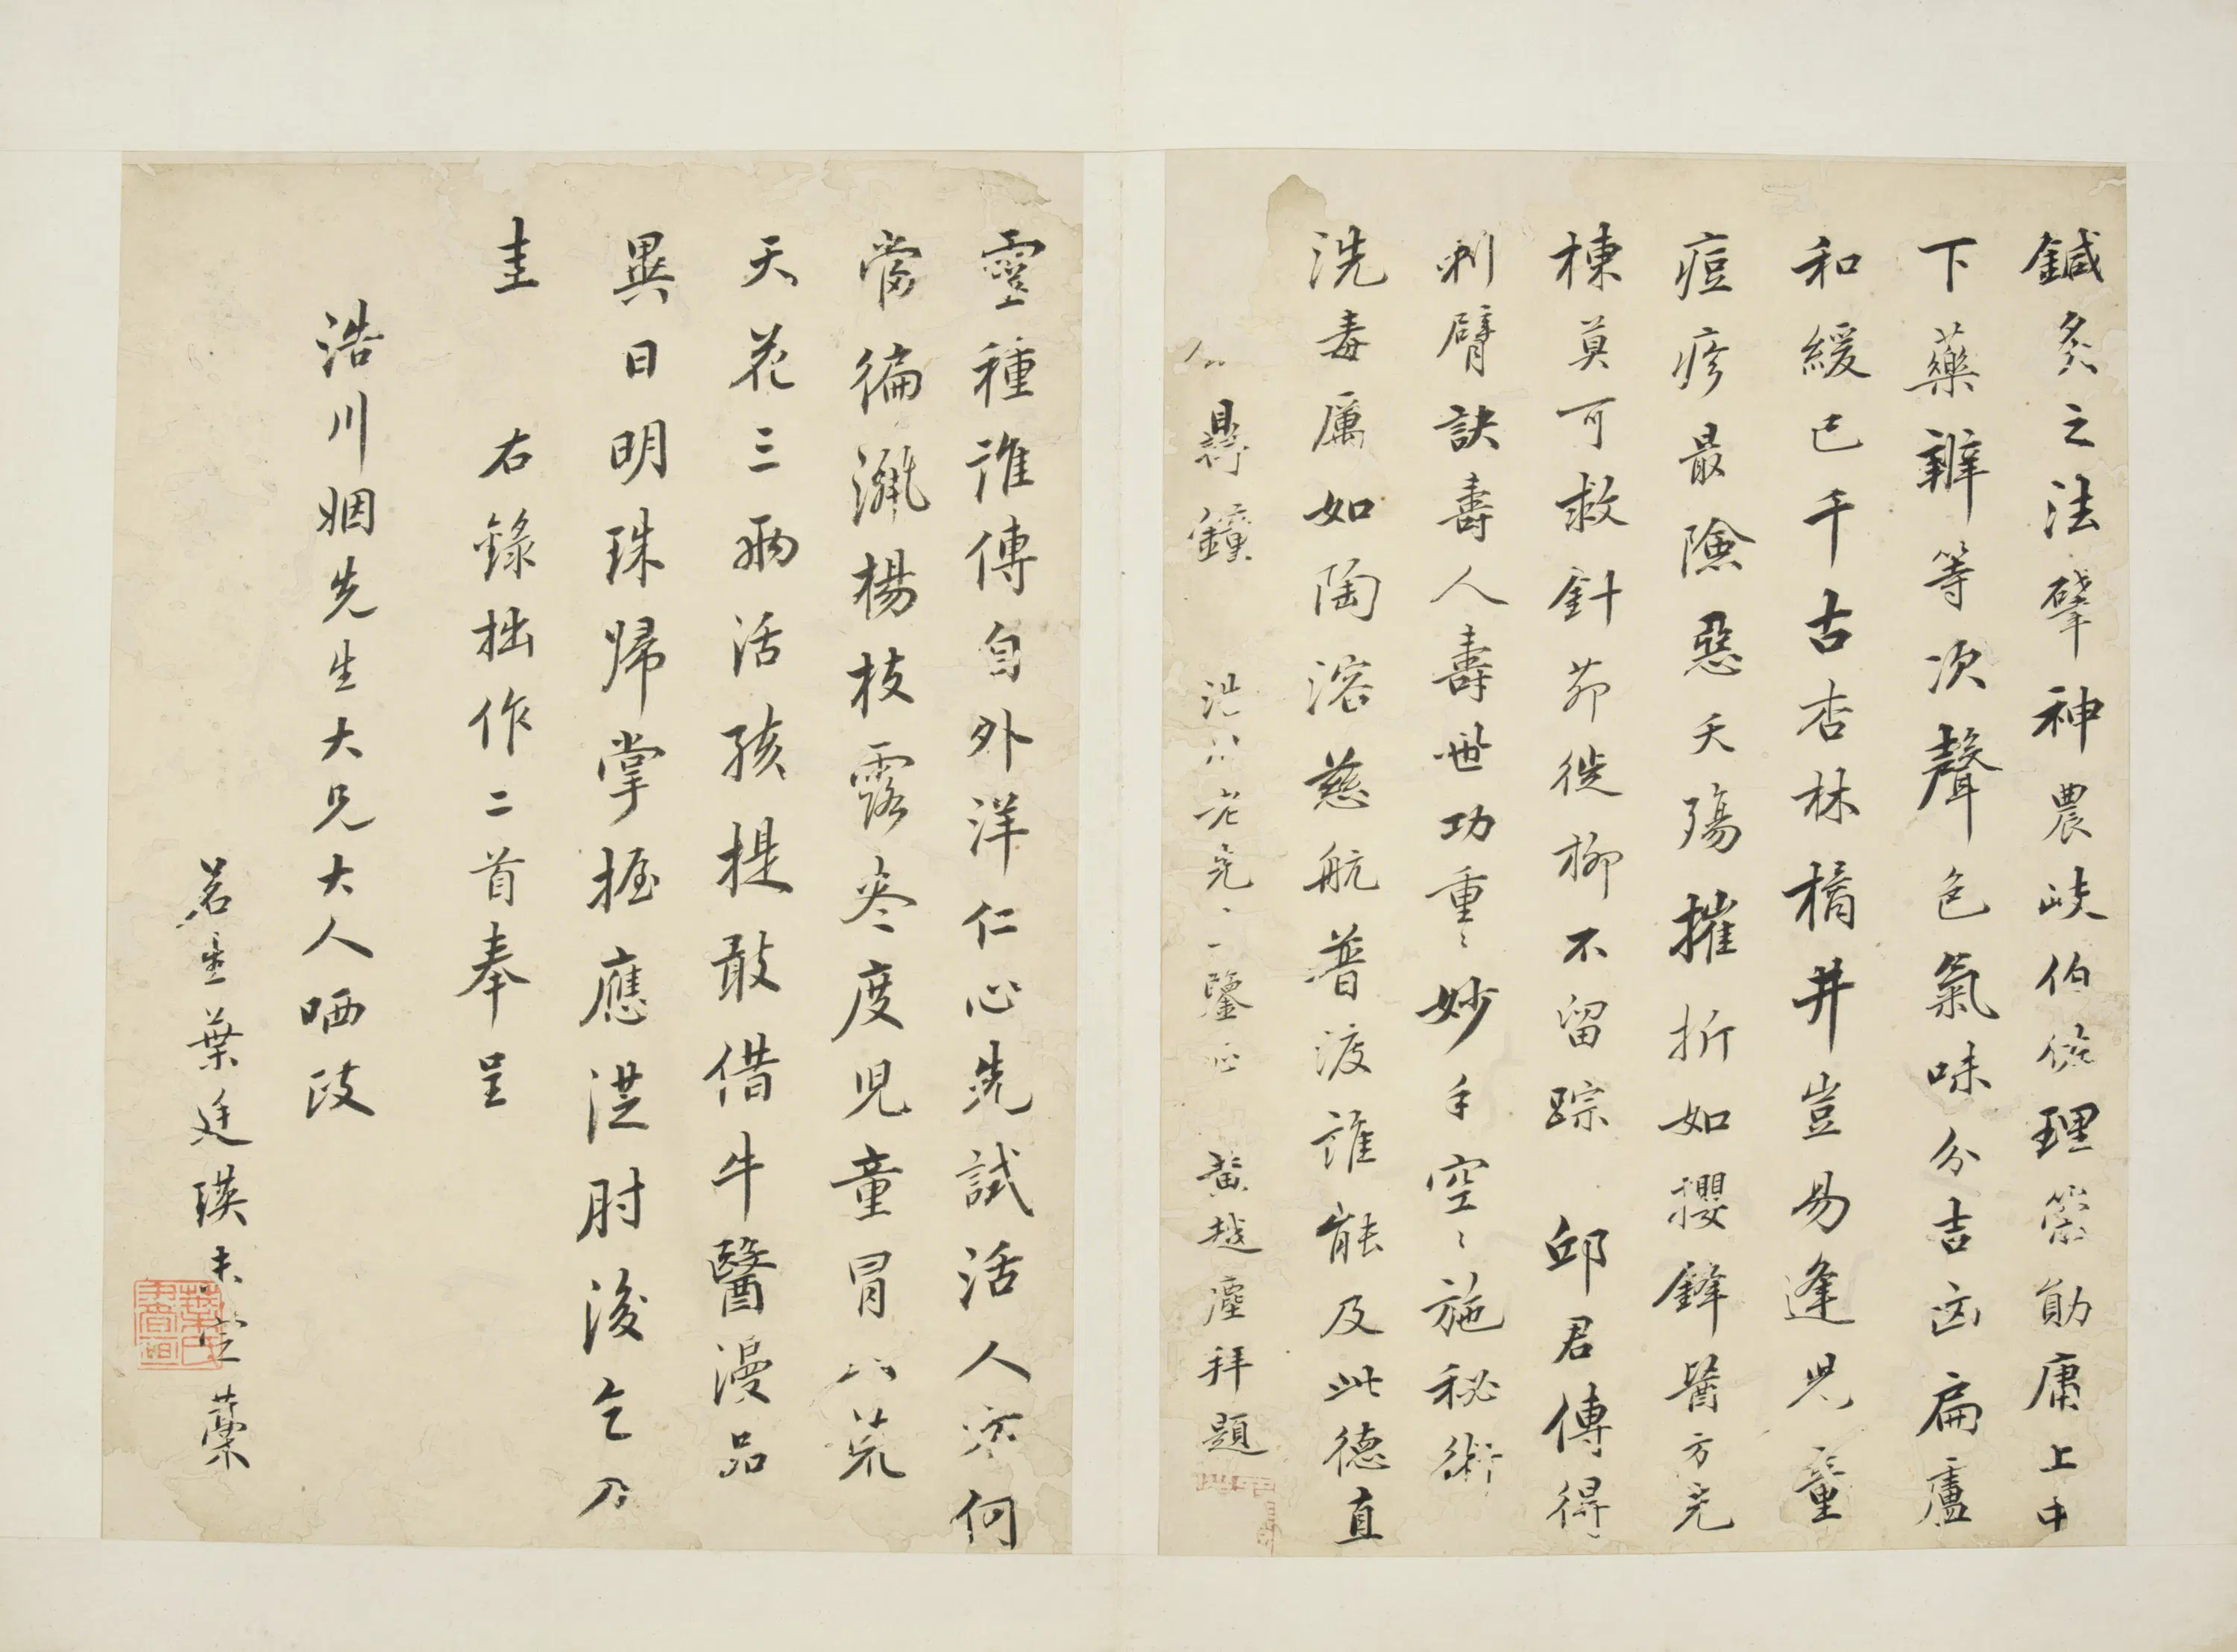 鍼灸之法肇神農岐伯條理策勛庸上中
下藥辨等次聲色氣味分吉凶扁盧
和緩已千古杏林橘井豈易逢児童
痘疹最險惡夭殤摧折如攖鋒醫方充
棟莫可救針茆徙柳不留踪邱君傳得
刺臂訣壽人壽世功重〻妙手空〻施秘術
洗毒厲如陶溶慈航普渡誰能及此德直
懸鐘 老 鑒 黃越塵拜題
靈種誰傳自外洋仁心先試活人方何
當徧灑楊枝露春度児童冒八荒
天花三兩活孩提敢借牛醫漫品
異日明珠帰掌握應從肘後乞刀
圭 右錄拙作二首奉呈
浩川姻先生大兄大人哂政
若 葉廷瑛未定藁
葉氏